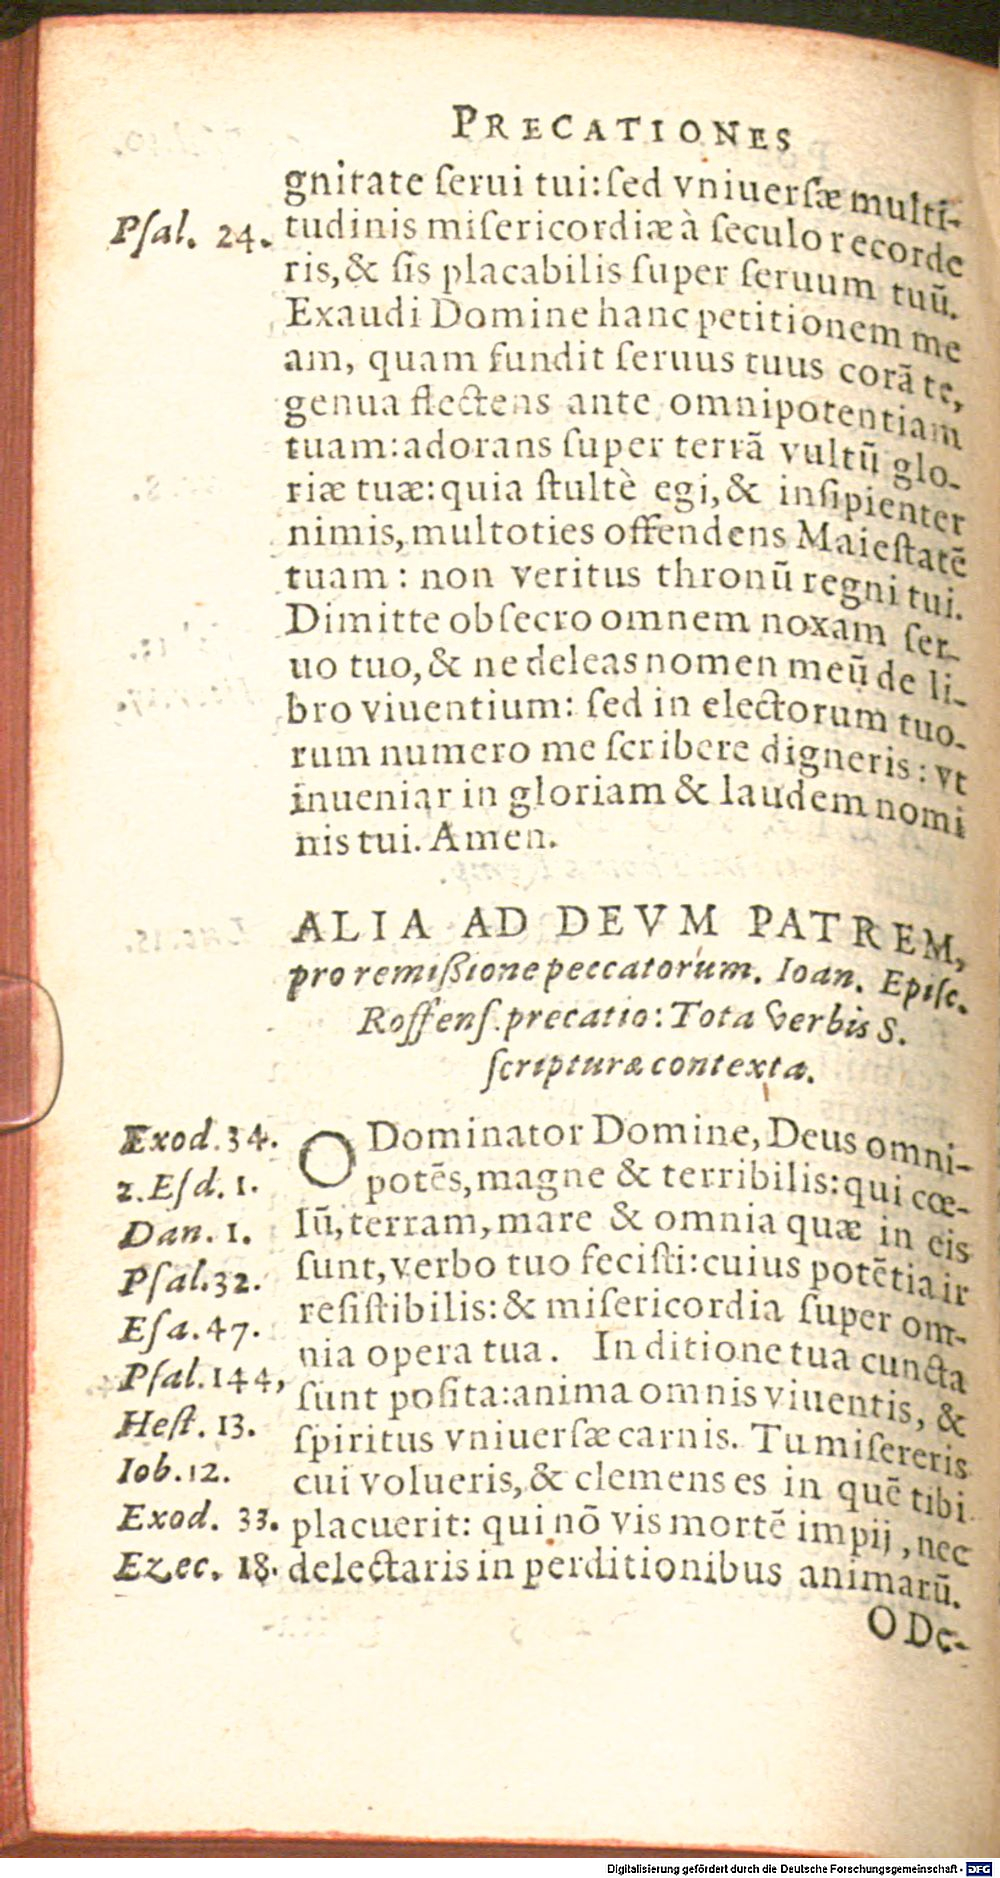 PRECATIONES
gnitate ſerui tui: ſed vniuerſæ multi-
Pſal. 24. tudinis miſericordiæ à ſeculo recorde
ris, & ſis placabilis ſuper ſeruum tuū.
Exaudi Domine hanc petitionem me
am, quam fundit ſeruus tuus corā te,
genua flectens ante omnipotentiam
tuam: adorans ſuper terrā vultū glo-
riæ tuæ: quia ſtultè egi, & inſipienter
nimis, multoties offendens Maieſtatē
tuam: non veritus thronū regni tui.
Dimitte obſecro omnem noxam ſer-
uo tuo, & ne deleas nomen meū de li-
bro viuentium: ſed in electorum tuo-
rum numero me ſcribere digneris: vt
inueniar in gloriam & laudem nomi
nis tui. Amen.
ALIA AD DEVM PATREM,
pro remiſsione peccatorum. Ioan. Epiſc.
Roffenſ. precatio: Tota verbis S.
ſcripturæ contexta.
Exod. 34. O Dominator Domine, Deus omni-
2. Eſd. 1. potēs, magne & terribilis: qui cœ-
Dan. 1. lū, terram, mare & omnia quæ in eis
Pſal. 32. ſunt, verbo tuo feciſti: cuius potētia ir
Eſa. 47. reſiſtibilis: & miſericordia ſuper om-
Pſal. 144, nia opera tua. In ditione tua cuncta
Heſt. 13. ſunt poſita: anima omnis viuentis, &
Iob. 12. ſpiritus vniuerſæ carnis. Tu miſereris
cui volueris, & clemens es in quē tibi
Exod. 33. placuerit: qui nō vis mortē impij, nec
Ezec. 18. delectaris in perditionibus animarū.
O De-
Digitalisierung gefördert durch die Deutsche Forschungsgemeinschaft - DFG